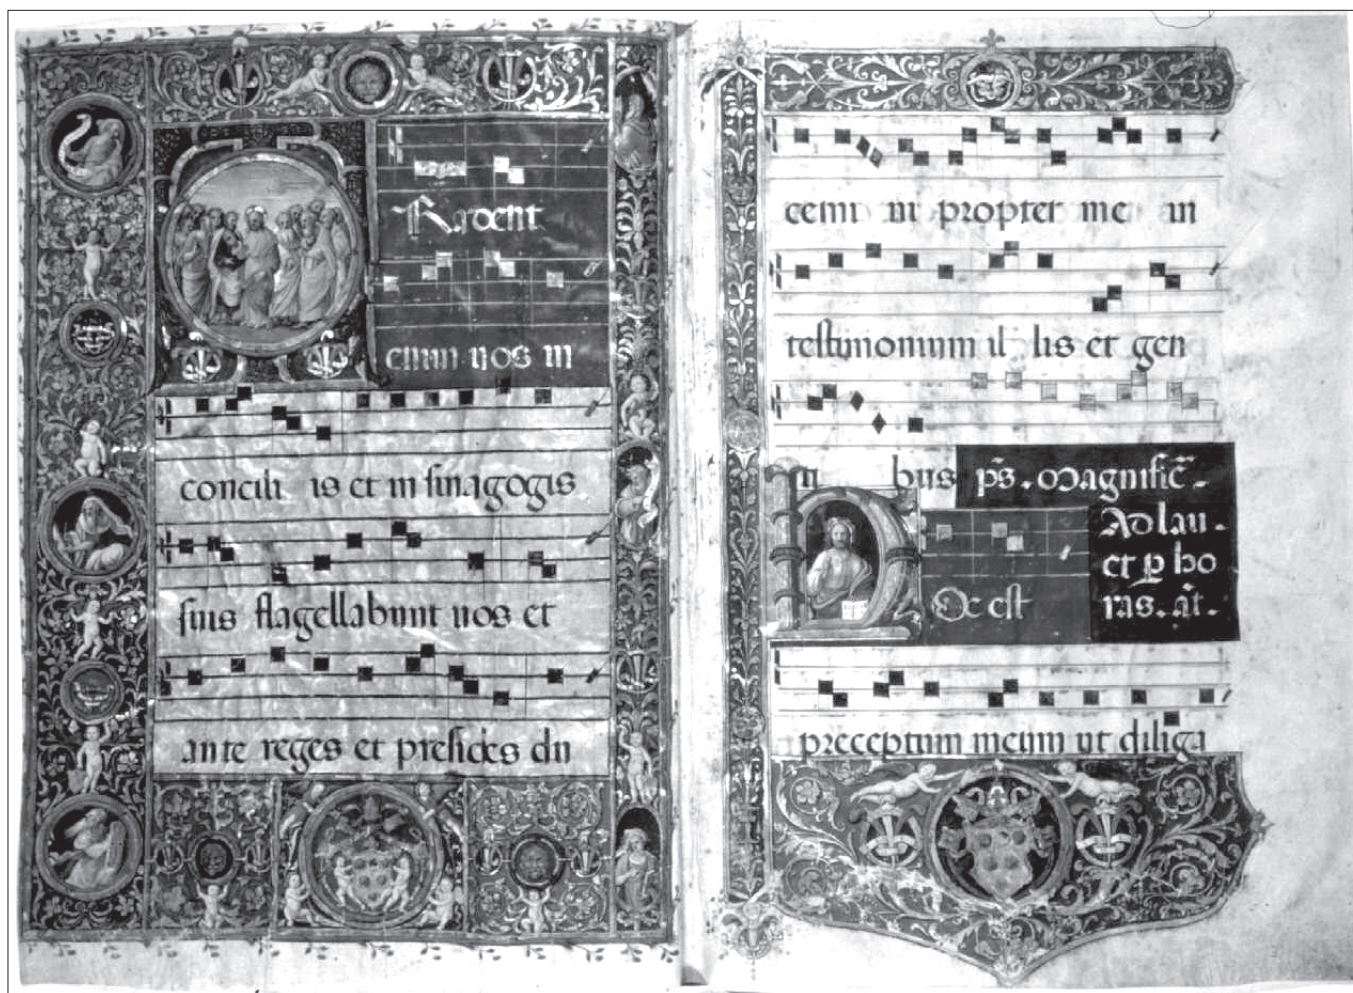 Radent
enim uos in
concili is et in sinagogis
suis flagellabunt uos et
ante reges et presides du
cemi ni propter me in
testimonium il lis et gen
ti bus p̃s. Magnific̃.
Ad lau.
et ꝑ ho
ras. añ.
Oc est
preceptum meum ut diliga